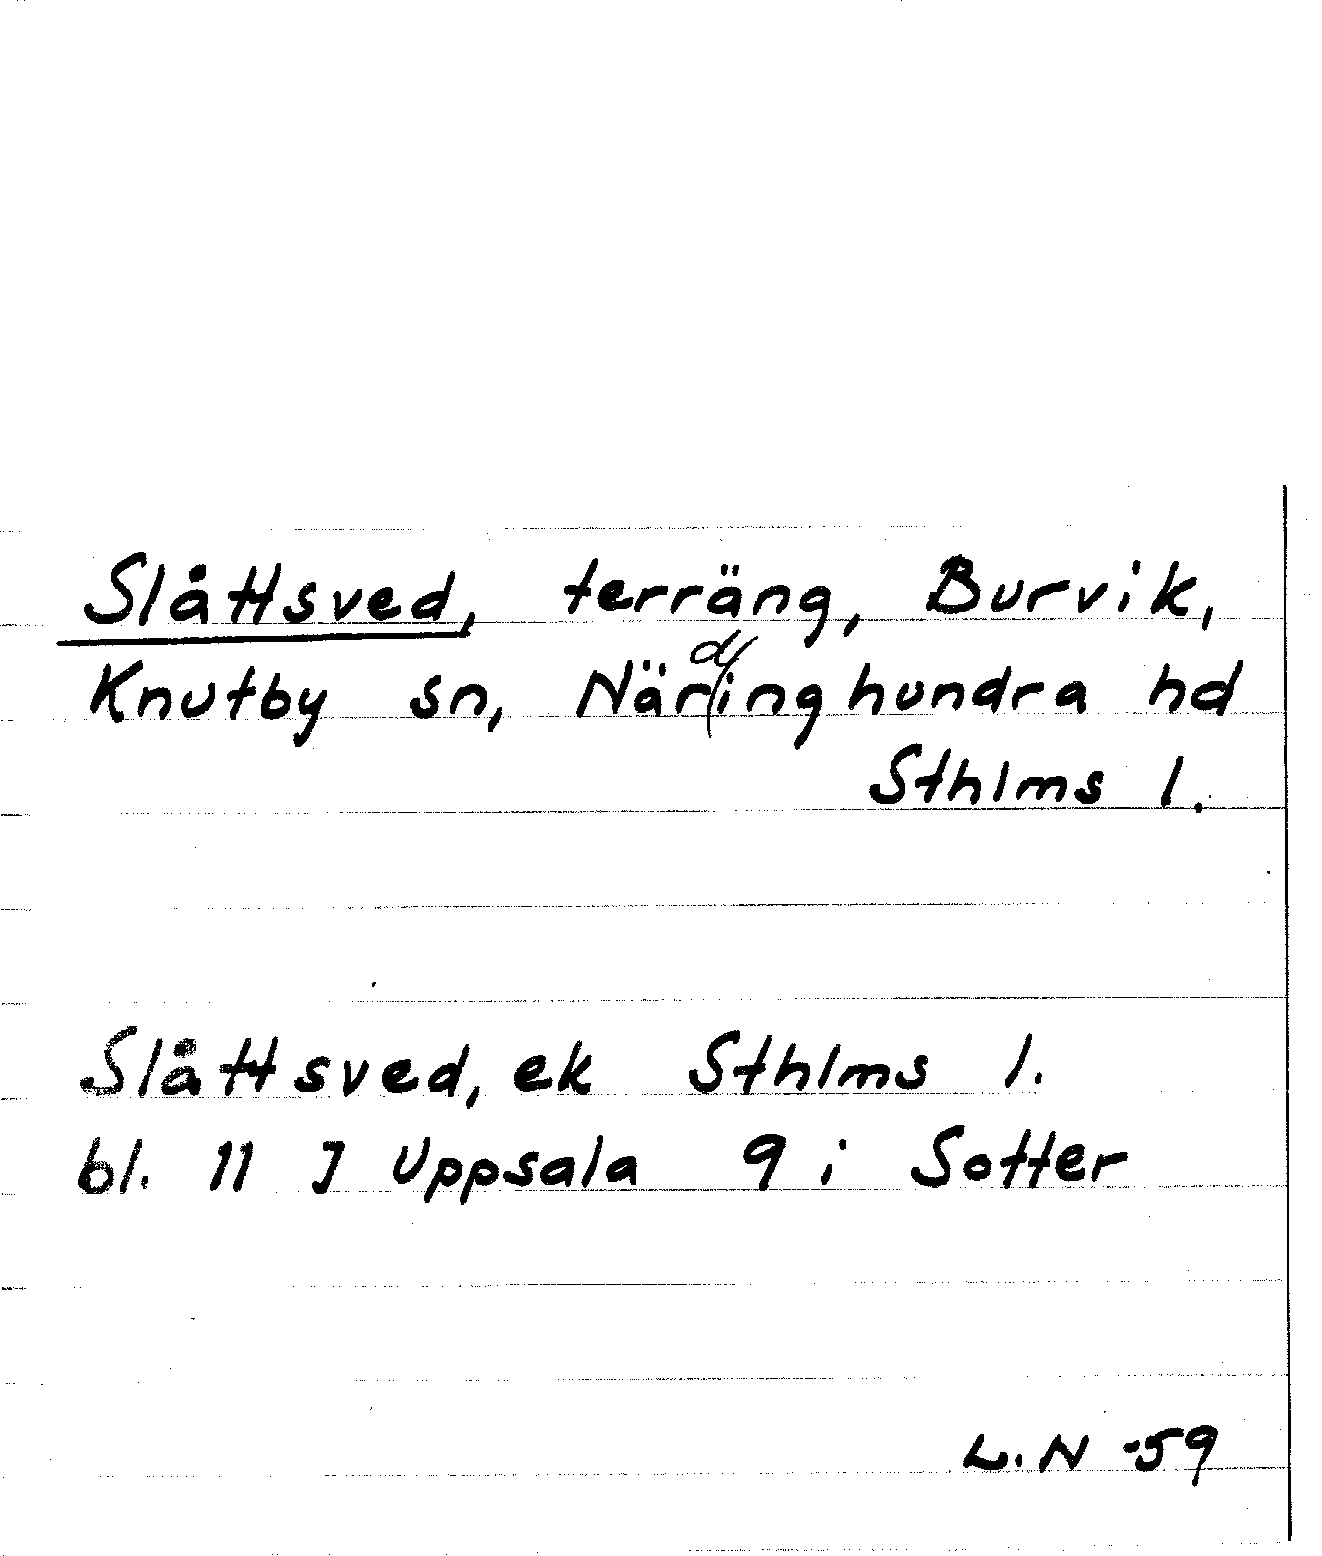 Slåttsved, terräng, Burvik,
Knutby sn, Närdinghundra hd
Sthlms l.
Slåttsved, ek Sthlms l.
bl. 11 J Uppsala 9 i Sotter
L.N -59